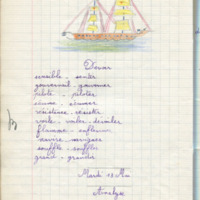 Devoir
sensible - sentir
gouvernail - gouverner
pilote - piloter
résistance - résister
voile - voiler - dévoiler
flamme - enflammer
navire - naviguer
souffle - souffler
grand - grandir
Mardi 13 Mai
Analyse